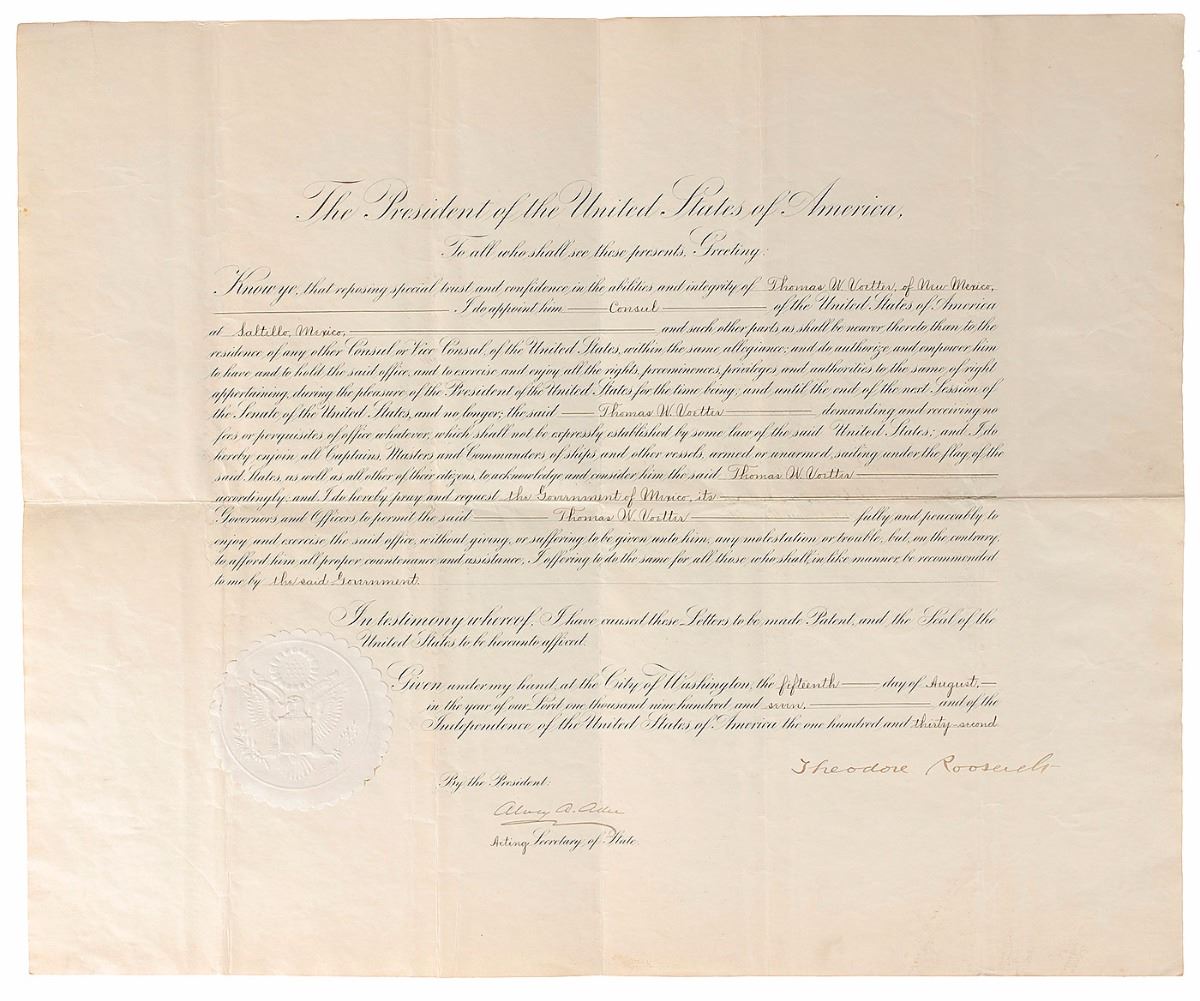 The President of the United States of America,
To all who shall see these presents, Greeting:
Know ye, that reposing special trust and confidence in the abilities and integrity of Thomas W. Voetter, of New Mexico,
I do appoint him Consul of the United States of America
at Saltillo, Mexico, and such other parts as shall be nearer thereto than to the
residence of any other Consul or Vice Consul, of the United States, within the same allegiance; and do authorize and empower him
to have and to hold the said office, and to exercise and enjoy all the rights, preeminences, privileges and authorities to the same of right
appertaining, during the pleasure of the President of the United States for the time being, and until the end of the next Session of
the Senate of the United States, and no longer; the said Thomas W. Voetter demanding and receiving no
fees or perquisites of office whatever, which shall not be expressly established by some law of the said United States; and I do
hereby enjoin all Captains, Masters and Commanders of ships and other vessels, armed or unarmed, sailing under the flag of the
said States, as well as all other of their citizens, to acknowledge and consider him the said Thomas W. Voetter
accordingly; and I do hereby pray and request the Government of Mexico, its
Governors and Officers to permit the said Thomas W. Voetter fully and peaceably to
enjoy and exercise the said office, without giving, or suffering to be given unto him, any molestation or trouble, but, on the contrary,
to afford him all proper countenance and assistance; I offering to do the same for all those who shall, in like manner, be recommended
to me by the said Government.
In testimony whereof, I have caused these Letters to be made Patent, and the Seal of the
United States to be hereunto affixed.
Given under my hand, at the City of Washington, the fifteenth day of August,
in the year of our Lord one thousand nine hundred and seven, and of the
Independence of the United States of America the one hundred and thirty-second
Theodore Roosevelt
By the President:
Alvey A. Adee
Acting Secretary of State.